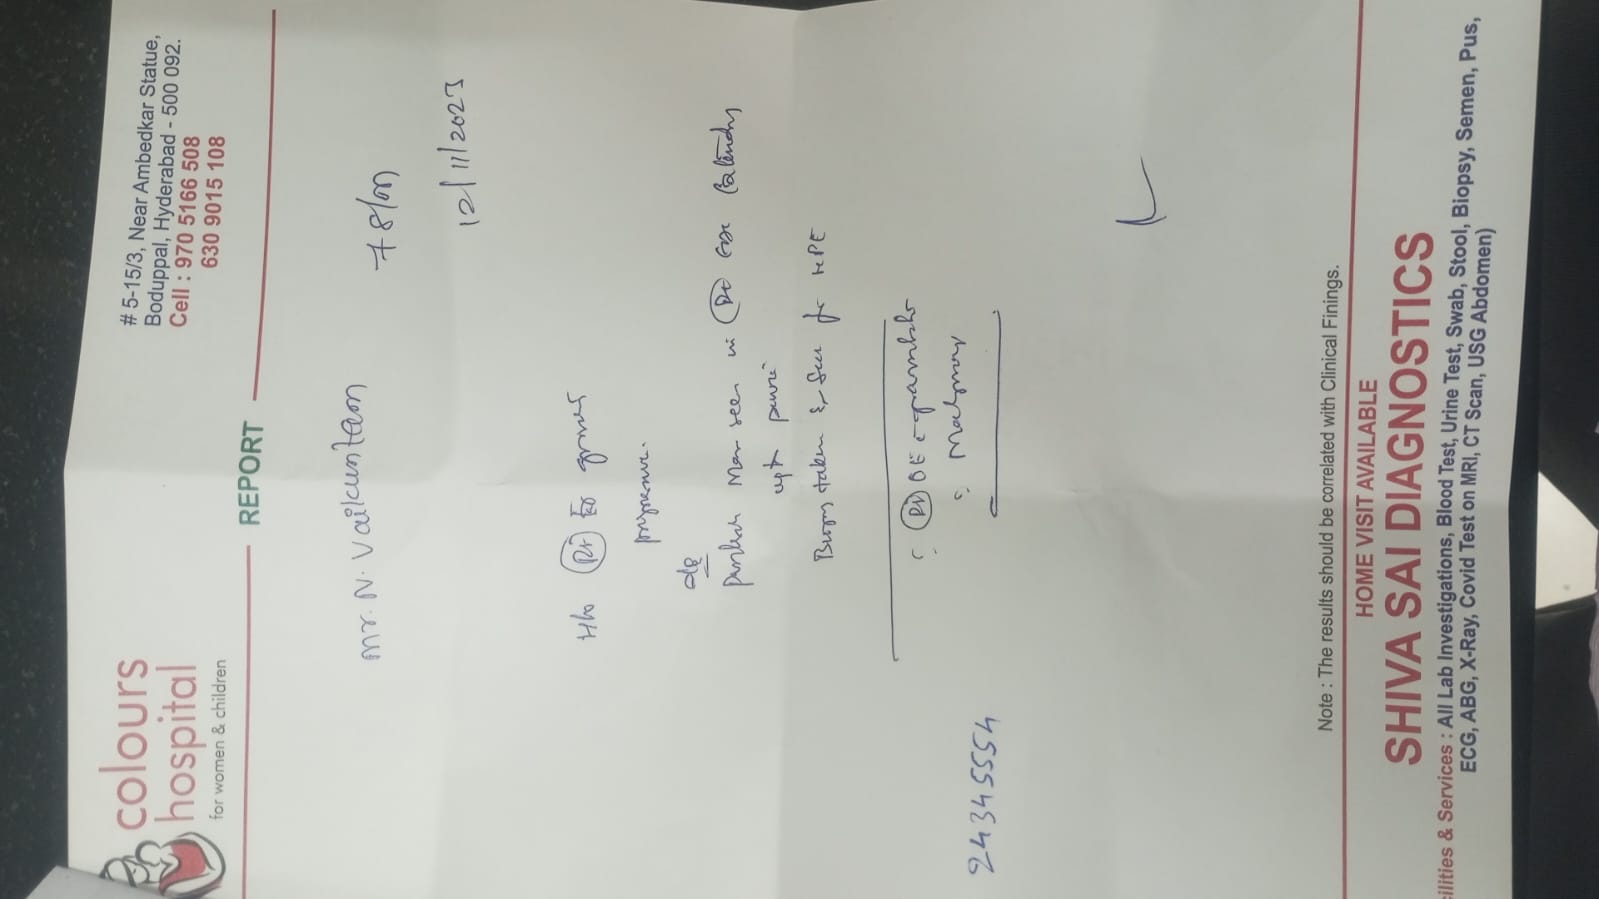 colours
hospital
for women & children
# 5-15/3, Near Ambedkar Statue,
Boduppal, Hyderabad - 500 092.
Cell : 970 5166 508
630 9015 108
REPORT
Mr. N. Vaikuntam 78/M
12/11/2023
H/o Rt
seen in Rt
Biopsy taken & for HPE
Rt OE
24345554
Note : The results should be correlated with Clinical Finings.
HOME VISIT AVAILABLE
SHIVA SAI DIAGNOSTICS
ilities & Services : All Lab Investigations, Blood Test, Urine Test, Swab, Stool, Biopsy, Semen, Pus,
ECG, ABG, X-Ray, Covid Test on MRI, CT Scan, USG Abdomen)